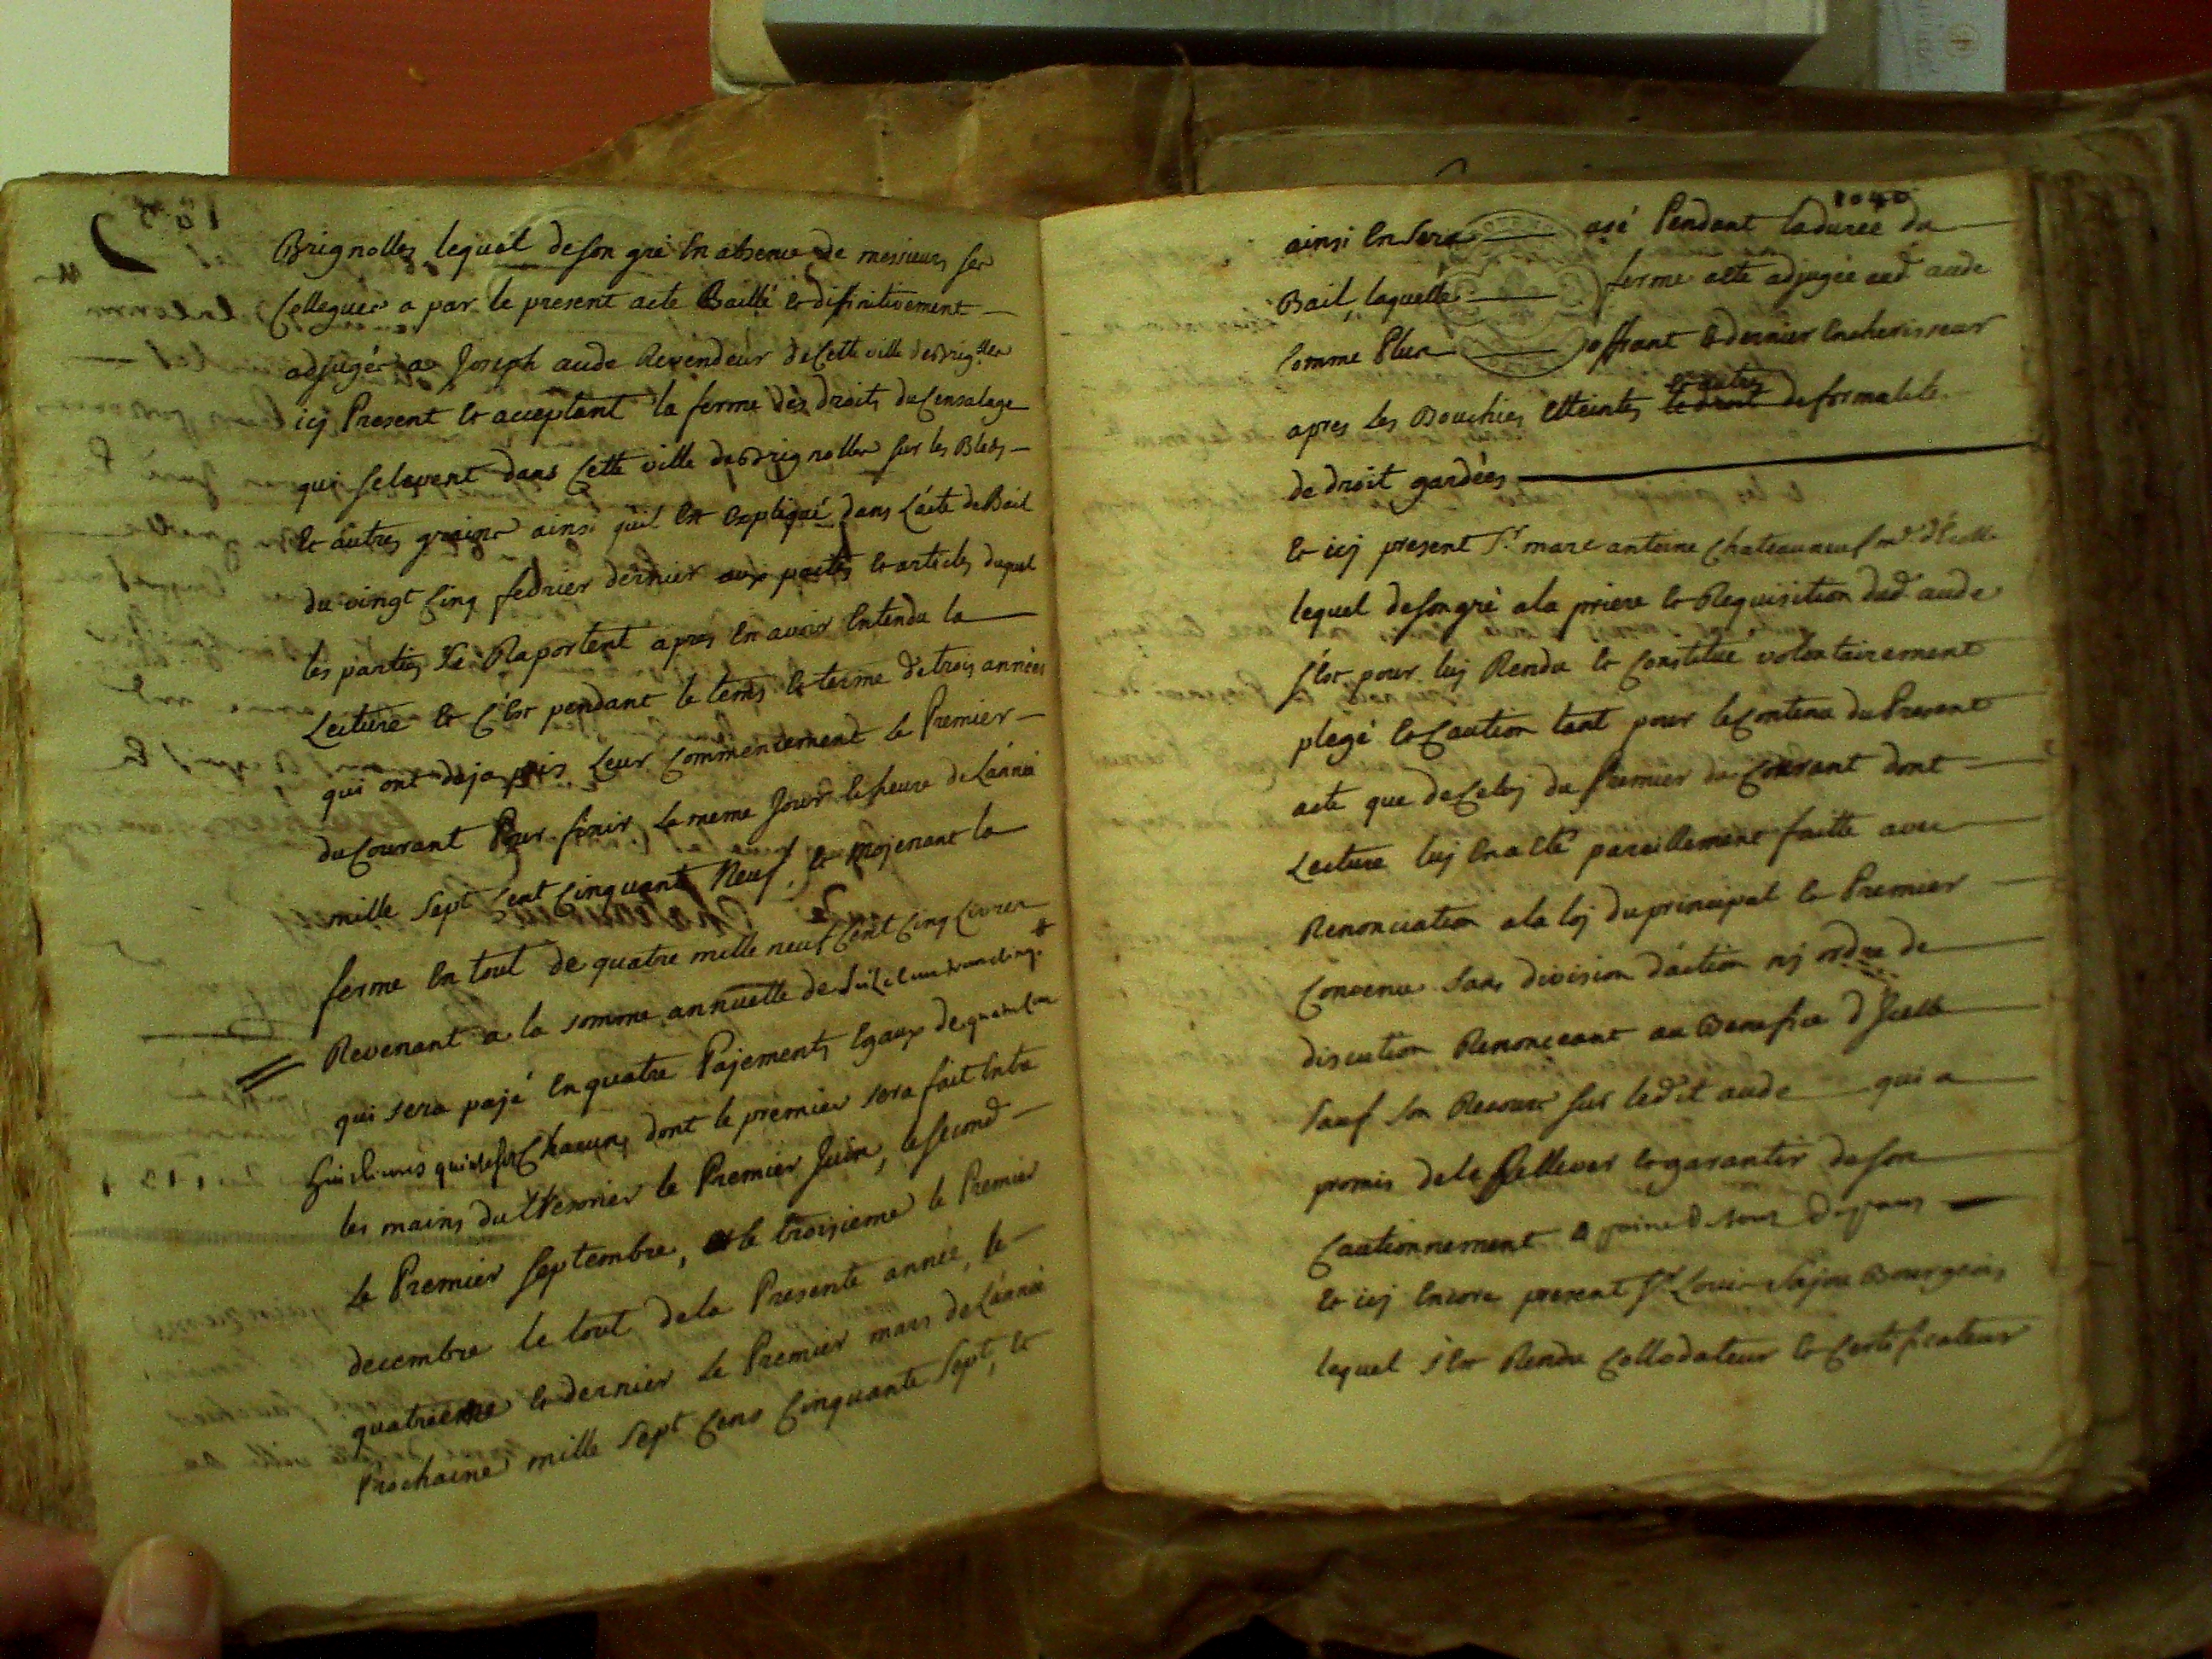 Brignolles lequel de son gré en absence de messieurs ses
Collegues a par le present acte Baillé et difinitivement
adjugér a Joseph aude Revendeur de Cette ville de Brig.lles
icy Present et acceptant la ferme des droits du Censalage
qui se levent dans Cette ville de Brignolles sur les Bleds
et autres grains ainsi quil est Expliqué dans L'acte de Bail
du vingt Cinq fevrier dernier aux pactes et articles duquel
les parties se Raportent apres en avoir Entendu la
Lecture et C'est pendant le tems et terme de trois années
qui ont deja pris Leur Commencement le Premier
du Courant Pour finir Le meme Jour et heure de L'année
mille sept Cent Cinquante Neuf, et mojenant la
ferme En tout de quatre mille neuf Cent Cinq Livres
Revenant a la somme annuelle de
qui sera pajé En quatre Pajements Egaux de quatre Cens
huit Livres quinze sols Chacun, dont le premier sera fait Entre
les mains du tresorier le Premier Juin, le second
Le Premier septembre, et le troisieme le Premier
decembre le tout de la Presente année, le
quatrieme et dernier Le Premier mars de L'année
Prochaine mille sept Cens Cinquante sept, et
1040
ainsi En sera usé Pendant la durée du
Bail, laquelle ferme a ete adjugée aud aude
Comme Plus offrant et dernier Encherisseur
apres Les Bouchies Etteintes et autres le droit de formalité
de droit gardées
et icy present Sr. marc antoine Chateauneuf
lequel de son gré a la priere et Requisition dud aude
s'est pour luj Rendu et Constitué volontairement
plegé et Caution tant pour le Contenu du Present
acte que de Celuj du Premier du Courant dont
Lecture luj En a eté pareillement faitte avec
Renonciation a la loj du principal et Premier
Convenu sans division d'action nj ordre de
discution Renonceant au Benefice d'Jcelle
sauf son Recours sur ledit aude qui a
promis de le Rellever et garantir de son
Cautionnement a peine de tous depans
et icy Encore present Sr. Louis Sajou Bourgeois
lequel s'est Rendu Collodateur et Certificateur